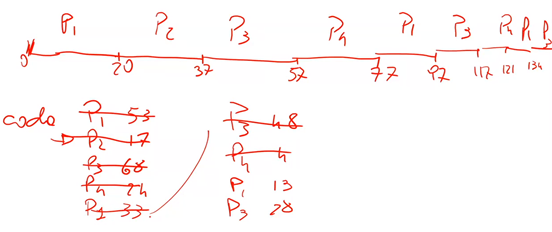 P1 P2 P3 P4 P1 P3 P4 P1 P3
0 20 37 57 77 97 117 121 134
coda
P1 53
P2 17
P3 68
P4 24
P1 33
P3 48
P4 4
P1 13
P3 28